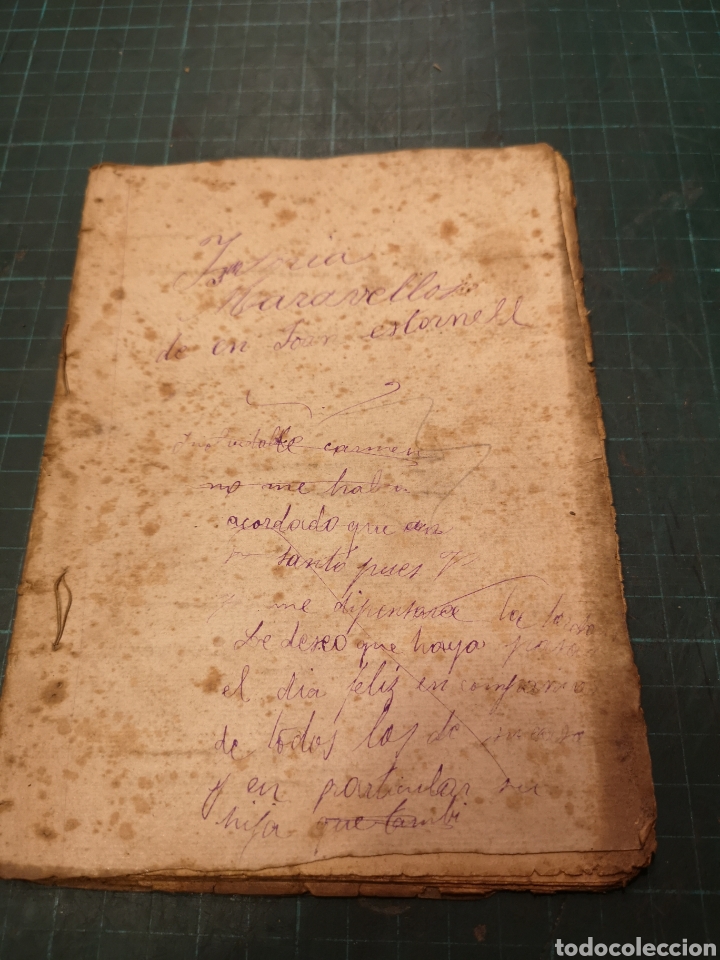 Maravellos
do en Joan estornell
carmen
no me habi
acordado que era
santo pues
me dipensara la
Le deseo que haya pasa
el dia feliz en
de todos los de
y en particular su
hija que tambi
todocoleccion